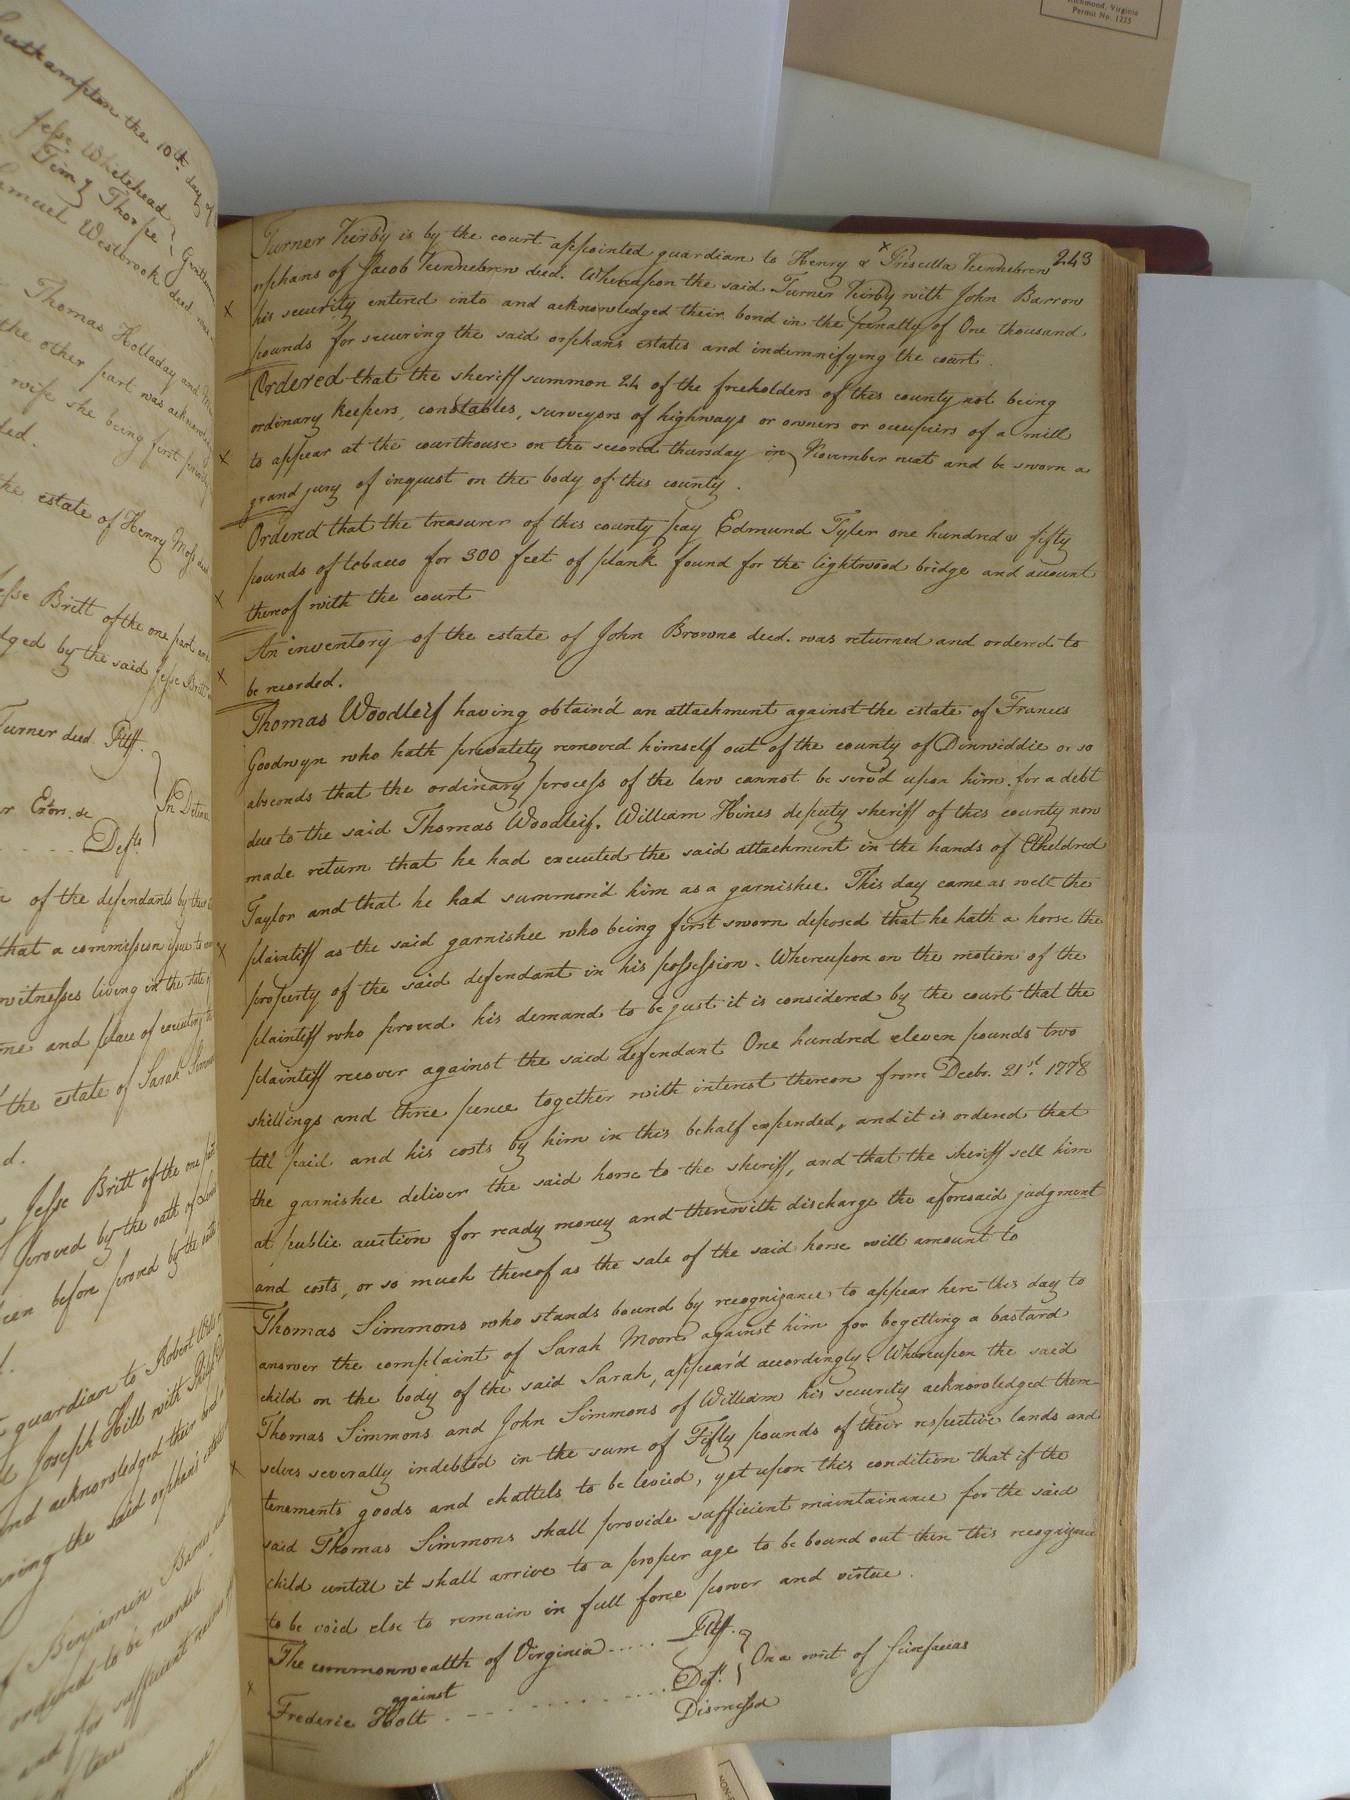 Richmond, Virginia
Permit No. 1225
Southampton the 10th day of
Jesse Whitehead
Timy Thorpe } Gentlemen
Samuel Westbrook deed. was
Thomas Holladay and
the other part was acknowledged
wife she being first privately
ded.
the estate of Henry Moss deed
Jesse Britt of the one part and
dged by the said Jesse Britt
Turner deed. Pltf.
r Exors. &c
Defts. } In Detinue
of the defendants by their
that a commission issue to
witnesses living in the state of
me and place of executing the
f the estate of Sarah Simmons
d.
Jesse Britt of the one part
proved by the oath of
een before proved by the
d.
guardian to Robert
Joseph Hill with
and acknowledged their bond
uring the said orphan's estate
Benjamin Barnes
ordered to be recorded.
and for sufficient reasons
243
Turner Kirby is by the court appointed guardian to Henry & Priscilla Kennebrew
orphans of Jacob Kennebrew deed. Whereupon the said Turner Kirby with John Barrow
his security entered into and acknowledged their bond in the penalty of One thousand
pounds for securing the said orphans estates and indemnifying the court
Ordered that the sheriff summon 24 of the freeholders of this county not being
ordinary keepers, constables, surveyors of highways or owners or occupiers of a mill
to appear at the courthouse on the second thursday in November next and be sworn a
grand jury of inquest on the body of this county.
Ordered that the treasurer of this county pay Edmund Tyler one hundred & fifty
pounds of tobacco for 300 feet of plank found for the lightwood bridge and account
thereof with the court
An inventory of the estate of John Browne deed. was returned and ordered to
be recorded.
Thomas Woodleif having obtain'd an attachment against the estate of Francis
Goodwyn who hath privately removed himself out of the county of Dinwiddie or so
absconds that the ordinary process of the law cannot be serv'd upon him. for a debt
due to the said Thomas Woodleif. William Hines deputy sheriff of this county now
made return that he had executed the said attachment in the hands of Etheldred
Taylor and that he had summon'd him as a garnishee. This day came as well the
plaintiff as the said garnishee who being first sworn deposed that he hath a horse the
property of the said defendant in his possession. Whereupon on the motion of the
plaintiff who proved his demand to be just it is considered by the court that the
plaintiff recover against the said defendant One hundred eleven pounds two
shillings and three pence together with interest thereon from Decbr. 21st. 1778
till paid and his costs by him in this behalf expended, and it is ordered that
the garnishee deliver the said horse to the sheriff, and that the sheriff sell him
at public auction for ready money and therewith discharge the aforesaid judgment
and costs, or so much thereof as the sale of the said horse will amount to
Thomas Simmons who stands bound by recognizance to appear here this day to
answer the complaint of Sarah Moore against him for begetting a bastard
child on the body of the said Sarah, appear'd accordingly. Whereupon the said
Thomas Simmons and John Simmons of William his security acknowledged them-
selves severally indebted in the sum of Fifty pounds of their respective lands and
tenements goods and chattels to be levied, yet upon this condition that if the
said Thomas Simmons shall provide sufficient maintainance for the said
child untill it shall arrive to a proper age to be bound out then this recognizance
to be void else to remain in full force power and virtue.
The commonwealth of Virginia ..... Pltf.
against } On a writ of Scirefacias
Frederic Holt - - - - - - - Deft.
Dismissed